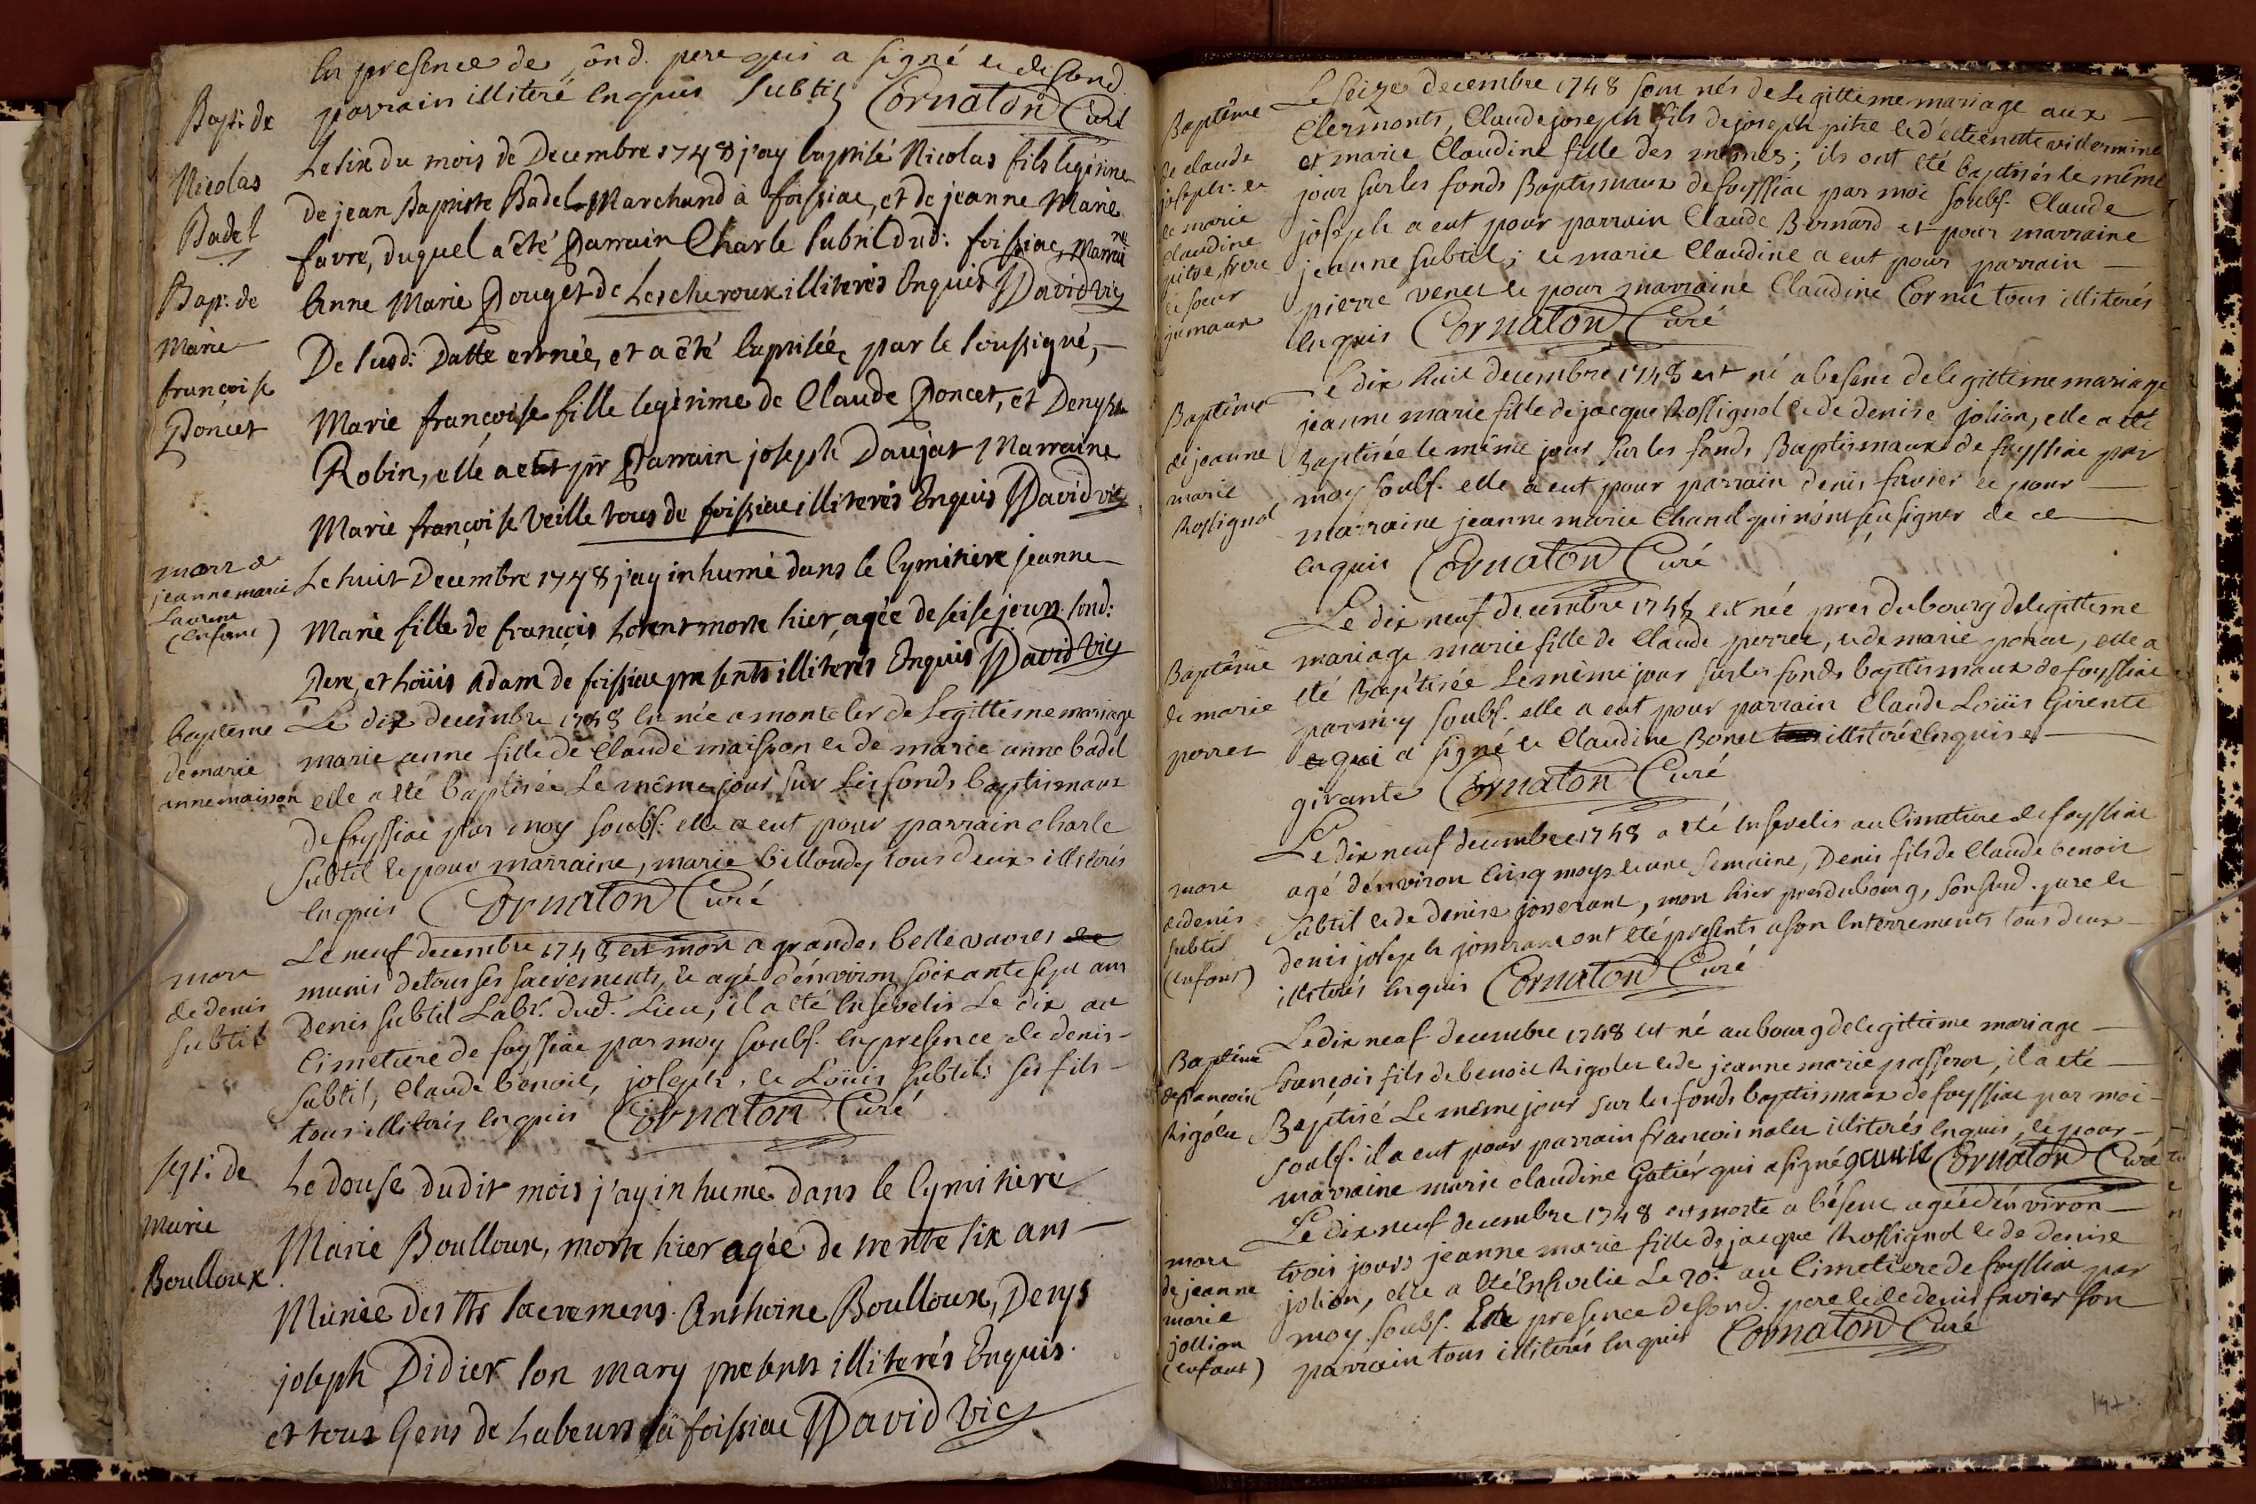 en presence de sond. pere qui a signé et de sond.
parrain illiteré enquis Subtil Cornaton Curé
Bapt: de
Nicolas
Badel
Le six du mois de Decembre 1748 j'ay baptisé Nicolas fils legitime
de jean Baptiste Badel Marchand à foissiac, et de jeanne Marie
favre, duquel a été Parrain Charle Subtil dud: foissiac, Marraine
Anne Marie Pouget de Lescheroux illiterés Enquis David vic
Bap: de
Marie
françoise
Poncet
De susd: Datte est née, et a été baptisée par le soussigné,
Marie françoise fille legitime de Claude Poncet, et Denyse
Robin, elle a eut pr Parrain joseph Daujat Marraine
Marie françoise Veille tous de foissiac illiterés Enquis David vic
mort de
jeanne marie
Laurent
(enfant)
Le huit Decembre 1748 j'ay inhumé dans le Cymitière jeanne
Marie fille de françois Lorent morte hier, agée de seise jours. sond:
Pere, et Loüis Adam de foissiac presents illiterés Enquis David Vic
bapteme
de marie
anne maisson
Le dix decembre 1748 est née a montcler de Legittime mariage
marie anne fille de Claude maisson et de marie anne badel
elle a été baptisée Le même jour sur Les fonds baptismaux
de foyssiac par moy soubs. elle a eut pour parrain charle
Subtil et pour marraine, marie billoudy tous deux illiterés
enquis Cornaton Curé
mort
de denis
subtil
Le neuf decembre 1748 est mort a grandes bellevavres
munis de tous ses sacrements, et agé d'environ soixante sept ans
Denis Subtil Labr. dud. Lieu, il a été ensevelis Le dix au
Cimetiere de foyssiac par moy soubs. en presence de denis
Subtil, Claude benoit, joseph, et Loüis subtil: ses fils
tous illiterés enquis Cornaton Curé
sept: de
Marie
Boulloux
Le douse dudit mois j'ay inhumé dans le Cymitière
Marie Boulloux, morte hier agée de trente six ans
Munie des sts sacremens. Anthoine Boulloux, Denys
joseph Didier son mary presents illiterés Enquis.
et tous Gens de Labeurs à foissiac David Vic
Baptême
de claude
joseph: et
de marie
claudine
pitre, frere
et soeur
jumeaux
Le seize decembre 1748 sont nés de Legittime mariage aux
Clermonts, Claude joseph fils de joseph pitre et d'etiennette villermine
et marie Claudine fille des mêmes; ils ont été baptisés le même
jour sur les fonds Baptismaux de foyssiac par moi soubs. Claude
joseph a eut pour parrain Claude Bernard et pour marraine
jeanne subtil; et marie Claudine a eut pour parrain
pierre venet et pour marraine Claudine Cornu tous illiterés
enquis Cornaton Curé
Baptême
de jeanne
marie
Rossignol
Le dix huit decembre 1748 est né a besenc de legittime mariage
jeanne marie fille de jacque Rossignol et de denise jolion, elle a été
Baptisée le même jour sur les fonds Baptismaux de foyssiac par
moy soubs. elle a eut pour parrain denis favier et pour
marraine jeanne marie Chanel qui n'ont seu signer de ce
enquis Cornaton Curé
Baptême
de marie
perret
Le dix neuf decembre 1748 est née pres du bourg de legittime
mariage marie fille de Claude perret, et de marie ponat, elle a
été Baptisée Le même jour sur les fonds baptismaux de foyssiac
par moy soubs. elle a eut pour parrain Claude Loüis Girente
qui a signé et Claudine Bonet illiterée enquise
girante Cornaton Curé
mort
de denis
subtil
(enfant)
Le dix neuf decembre 1748 a été ensevelis au Cimetiere de foyssiac
agé d'environ cinq moys et une semaine, Denis fils de Claude benoit
Subtil et de denise josserant, mort hier pres du bourg, son susd. pere et
denis joseph josserant ont été presents a son enterrements tous deux
illiterés enquis Cornaton Curé
Baptême
de francois
Rigolet
Le dix neuf decembre 1748 est né au bourg de legittime mariage
francois fils de benoit Rigolet et de jeanne marie passerat, il a eté
Baptisé Le même jour sur les fonds baptismaux de foyssiac par moi
soubs. il a eut pour parrain francois nalet illiterés enquis, et pour
marraine marie claudine Gatier qui a signé Cornaton Curé
mort
de jeanne
marie
jollion
(enfant)
Le dix neuf decembre 1748 est morte a bésenc agée d'environ
trois jours jeanne marie fille de jacque Rossignol et de denise
jolion, elle a été ensevelie Le 20e. au Cimetiere de foyssiac par
moy soubs. En presence de sond. pere et de denis favier son
parrain tous illiterés enquis Cornaton Curé